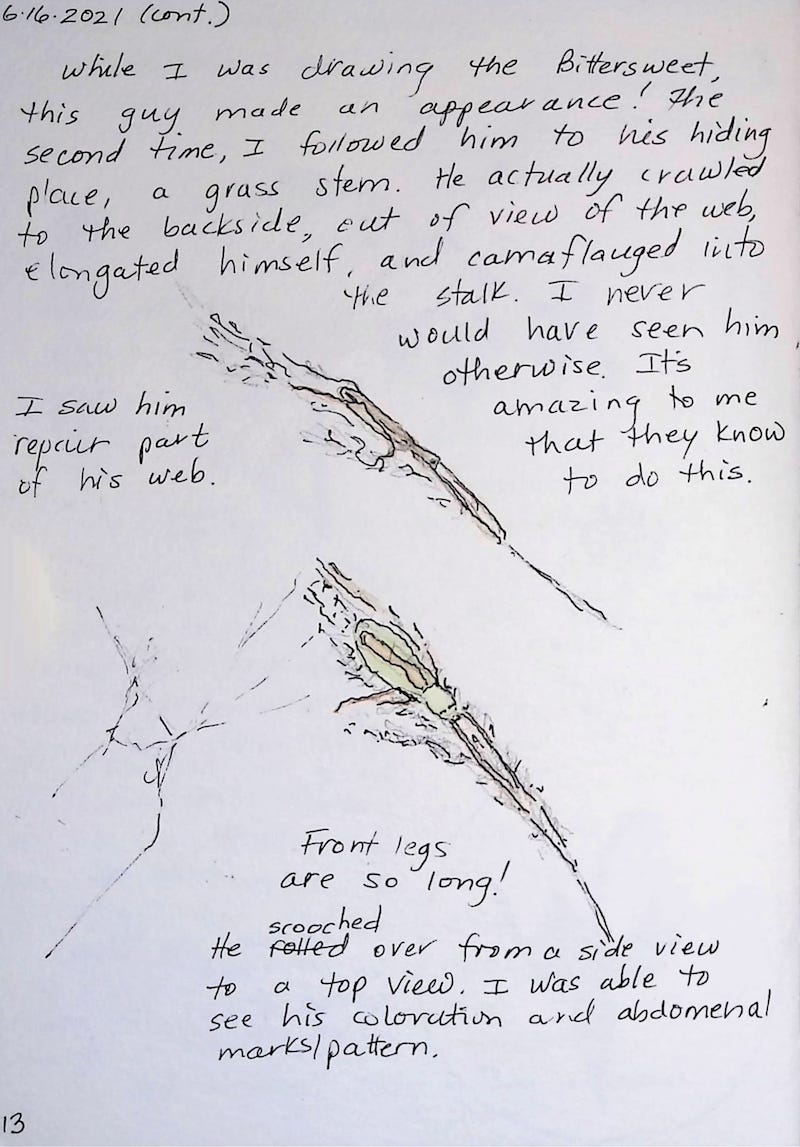 6.16.2021 (cont.)
while I was drawing the Bittersweet,
this guy made an appearance! The
second time, I followed him to his hiding
place, a grass stem. He actually crawled
to the backside, out of view of the web,
elongated himself, and camaflauged into
the stalk. I never
would have seen him
otherwise. It's
amazing to me
that they know
to do this.
I saw him
repair part
of his web.
Front legs
are so long!
scooched
He rolled over from a side view
to a top view. I was able to
see his coloration and abdomenal
marks/pattern.
13